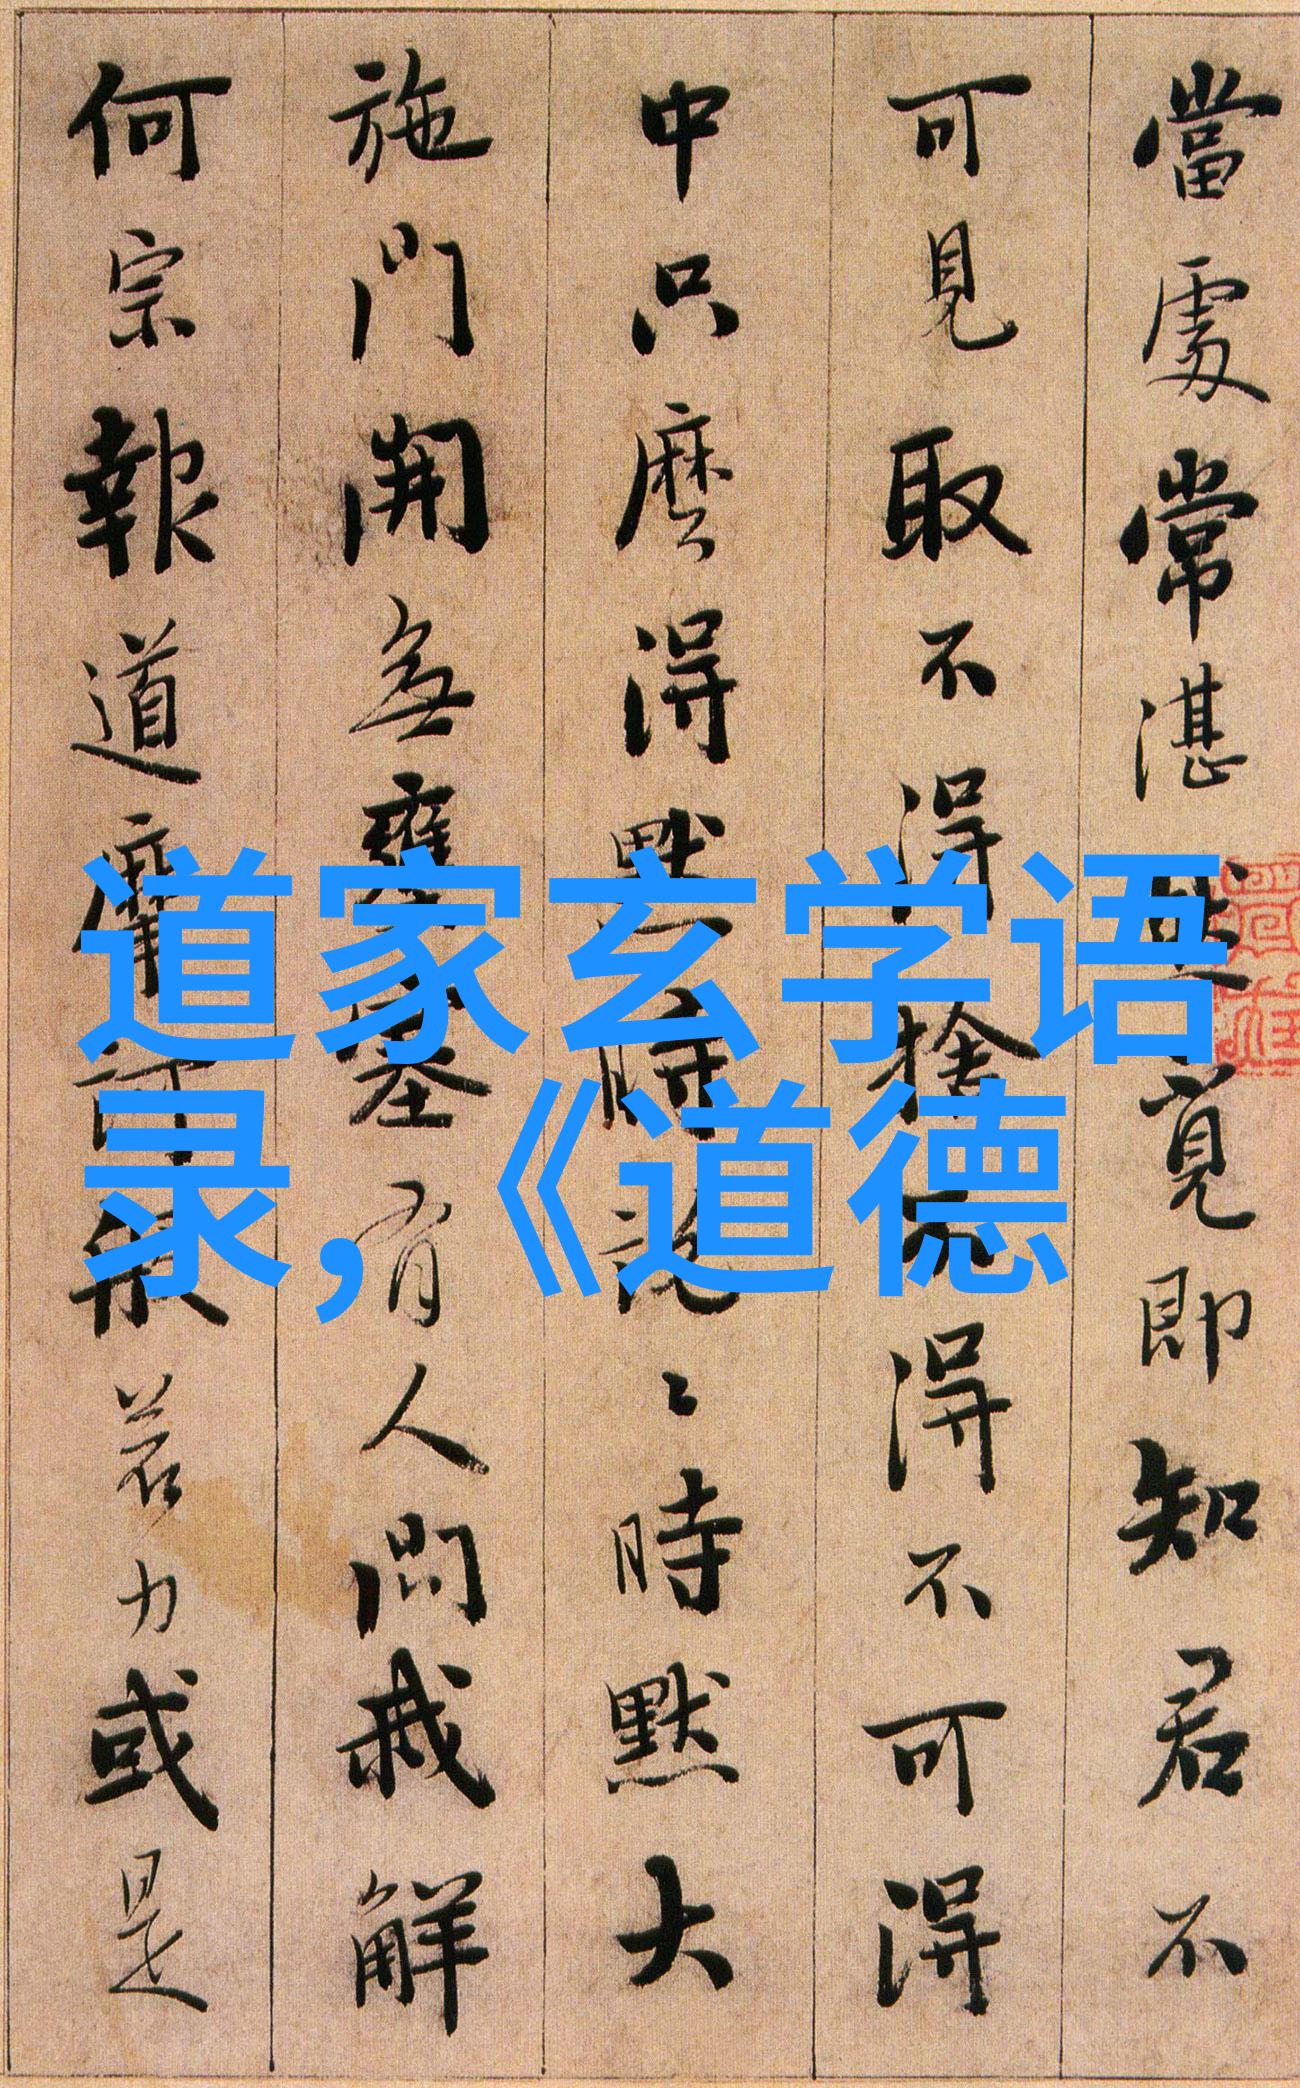 當處常湛然覓即知君不
可見取不得捨不得不可得
中只麽得默時說〻時默大
施門開無壅塞有人問我解
何宗報道摩訶般若力或是
道家玄学语
录，《道德